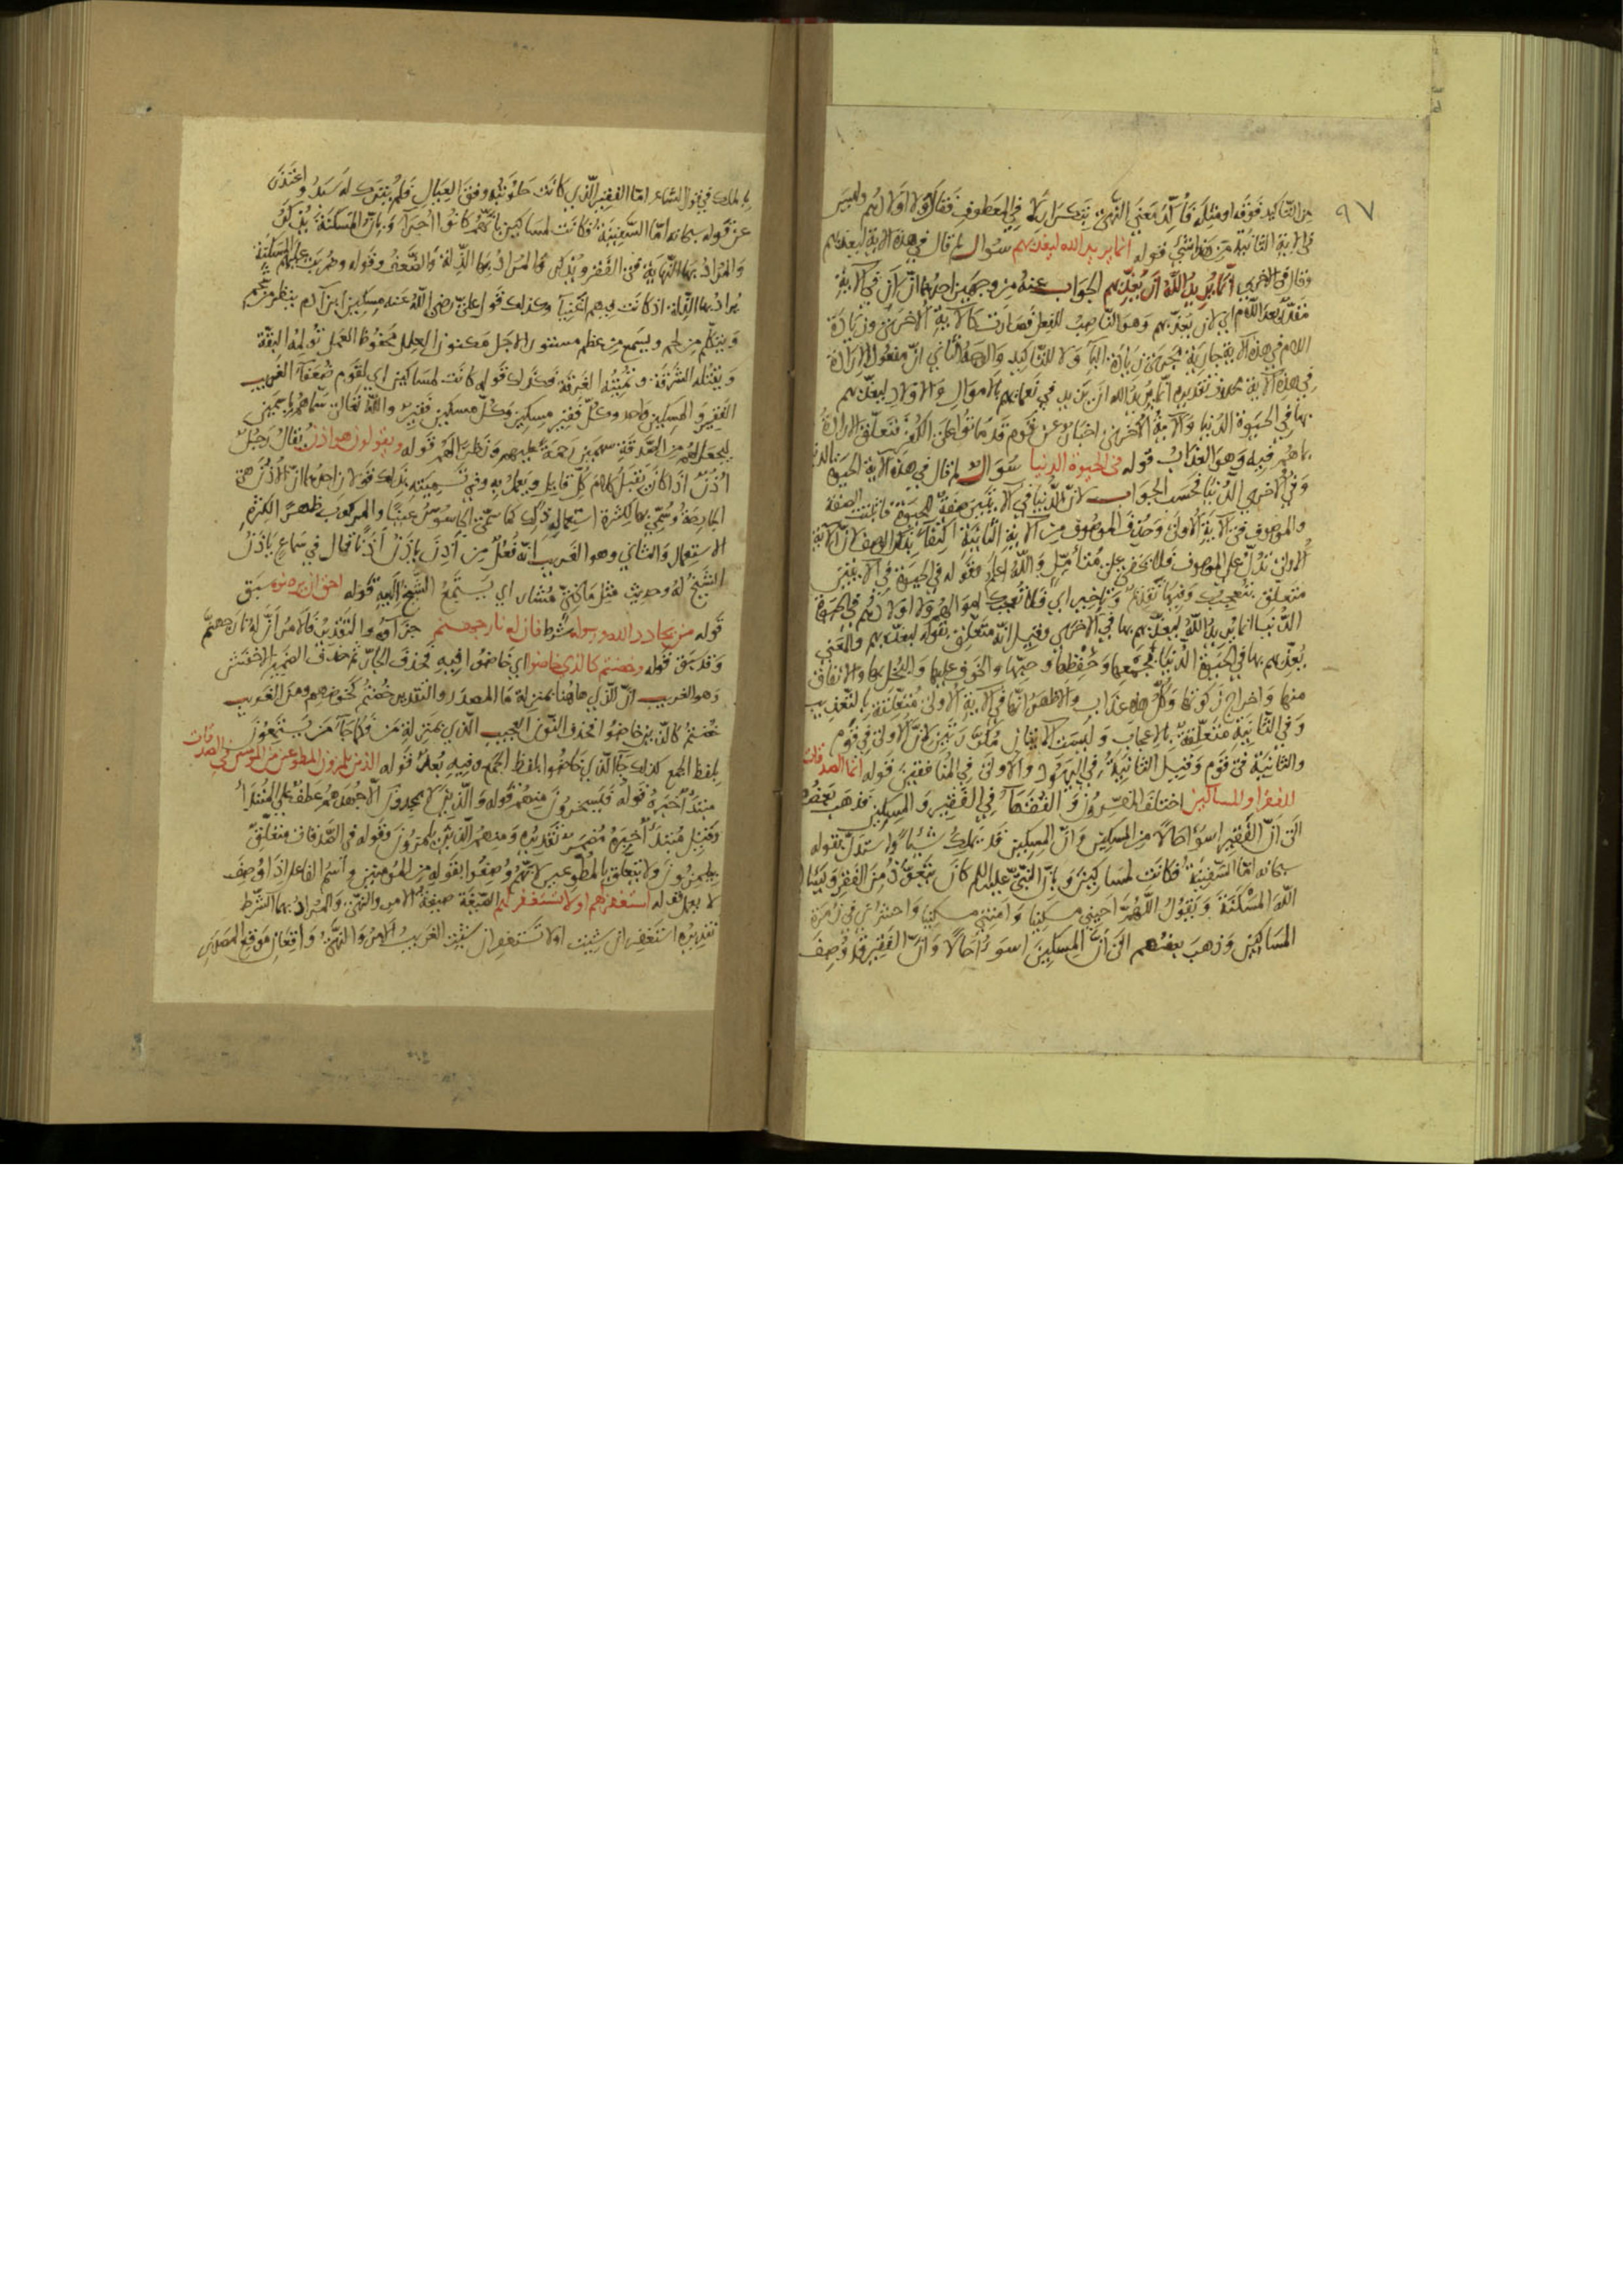 ٩٧
من التأكيد فوقه او مثله فأكد معنى النهي بتكرار لا في المعطوف فقال ولا اولادهم وليس
في الآية الثانية من هذا شيء قوله انما يريد الله ليعذبهم سؤال لم قال في هذه الآية ليعذبهم
وقال في الاخرى انما يريد الله ان يعذبهم الجواب عنه من وجهين احدهما ان ان في الآية
مقدر بعد اللام اي لان يعذبهم وهو الناصب للفعل فصارت كالآية الاخرى وزيادة
اللام في هذه الآية جارية مجرى زيادة الباء ولا للتأكيد والوجه الثاني ان مفعول الارادة
في هذه الآية محذوف تقديره انما يريد الله ان يزيد في نعمائهم بالاموال والاولاد ليعذبهم
بها في الحيوة الدنيا والآية الاخرى اخبار عن قوم قد ماتوا على الكفر فتعلق الارادة
بما هم فيه وهو العذاب قوله في الحيوة الدنيا سؤال لم قال في هذه الآية الحيوة الدنيا
وفي الاخرى الدنيا فحسب الجواب لان الدنيا في الآيتين صفة للحيوة فاثبتت الصفة
والموصوف في الآية الاولى وحذف الموصوف من الآية الثانية اكتفاء بذكر الوصف لان الآية
الاولى تدل على الموصوف فلا يخفى على متأمل والله اعلم وقوله في الحيوة في الآيتين
متعلق بتعجبك وفيها تقديم وتاخير اي فلا تعجبك اموالهم ولا اولادهم في الحيوة
الدنيا انما يريد الله ليعذبهم بها في الاخرى وقيل انه متعلق بقوله ليعذبهم والمعنى
يعذبهم بها في الحيوة الدنيا بجمعها وحفظها وحبها والخوف عليها والبخل بها والانفاق
منها واخراج زكوتها وكل هذه عذاب والاظهر انها في الآية الاولى متعلقة بالتعذيب
وفي الثانية متعلقة بالاعجاب وليست الآيتان مكررتين لان الاولى في قوم
والثانية في قوم وقيل الثانية في اليهود والاولى في المنافقين قوله انما الصدقات
للفقراء والمساكين اختلف المفسرون والفقهاء في الفقير والمسكين فذهب بعضهم
الى ان الفقير اسوأ حالا من المسكين وان المسكين قد يملك شيئا واستدل بقوله
سبحانه اما السفينة فكانت لمساكين وبان النبي عليه السلام كان يتعوذ من الفقر ويسأل
الله المسكنة ويقول اللهم احيني مسكينا وامتني مسكينا واحشرني في زمرة
المساكين وذهب بعضهم الى ان المسكين اسوأ حالا وان الفقير قد وصف
بالملك في قول الشاعر اما الفقير الذي كانت حلوبته وفق العيال فلم يترك له سبد واعتذر
عن قوله سبحانه اما السفينة فكانت لمساكين بانهم كانوا اجراء وبان المسكنة يذكر
والمراد بها النهاية في الفقر ويذكر والمراد بها الذلة والضعف وقوله وضربت عليهم المسكنة
يراد بها الذلة اذ كانت فيهم اغنياء وكذلك قول علي رضي الله عنه مسكين ابن آدم ينظر بشحم
ويتكلم من لحم ويسمع من عظم مستور الاجل مكنون العلل محفوظ العمل تؤلمه البقة
وتقتله الشرقة وتميته الغرقة فكذلك قوله كانت لمساكين اي لقوم ضعفاء الغريب
الفقير والمسكين واحد وكل فقير مسكين وكل مسكين فقير والله تعالى سماهم باسمين
ليجعل لهم من الصدقة سهمين رحمة عليهم ونظرا لهم قوله ويقولون هو اذن يقال رجل
اذن اذا كان يقبل كلام كل قايل ويعمل به وفي تسميته بذلك قولان احدهما ان الاذن هي
الجارحة وسمي بها لكثرة استعماله ذلك كما سمي الجاسوس عينا والمركوب ظهرا لكثرة
الاستعمال والثاني وهو الغريب انه فعل من اذن ياذن اذنا قال في سماع ياذن
الشيخ له وحديث مثل ماذي مشار اي يستمع الشيخ اليه قوله احق ان يرضوه سبق
قوله من يحادد الله ورسوله شرط فان له نار جهنم جزاؤه والتقدير فالامر ان له نار جهنم
وقد سبق قوله وخضتم كالذي خاضوا اي خاضوا فيه فحذف الجار ثم حذف الضمير الاخفش
وهو الغريب ان الذي هاهنا بمنزلة ما المصدر والتقدير خضتم كخوضهم ومن الغريب
خضتم كالذين خاضوا فحذف النون العجيب الذي بمنزلة من فكما جاء من يستمعون
بلفظ الجمع كذلك جاء الذي خاضوا بلفظ الجمع وفيه بعد قوله الذين يلمزون المطوعين من المؤمنين في الصدقات
مبتدأ خبره قوله فيسخرون منهم قوله والذين لا يجدون الا جهدهم عطف على المبتدأ
وقيل مبتدأ خبره مضمر تقديره ومنهم الذين يلمزون وقوله في الصدقات متعلق
بيلمزون ولا يتعلق بالمطوعين لانهم وصفوا بقوله من المؤمنين واسم الفاعل اذا وصف
لا يعمل قوله استغفر لهم او لا تستغفر لهم الصيغة صيغة الامر والنهي والمراد بهما الشرط
تقديره استغفر ان شئت او لا تستغفر ان شئت الغريب الامر والنهي واقعان موقع المصدر